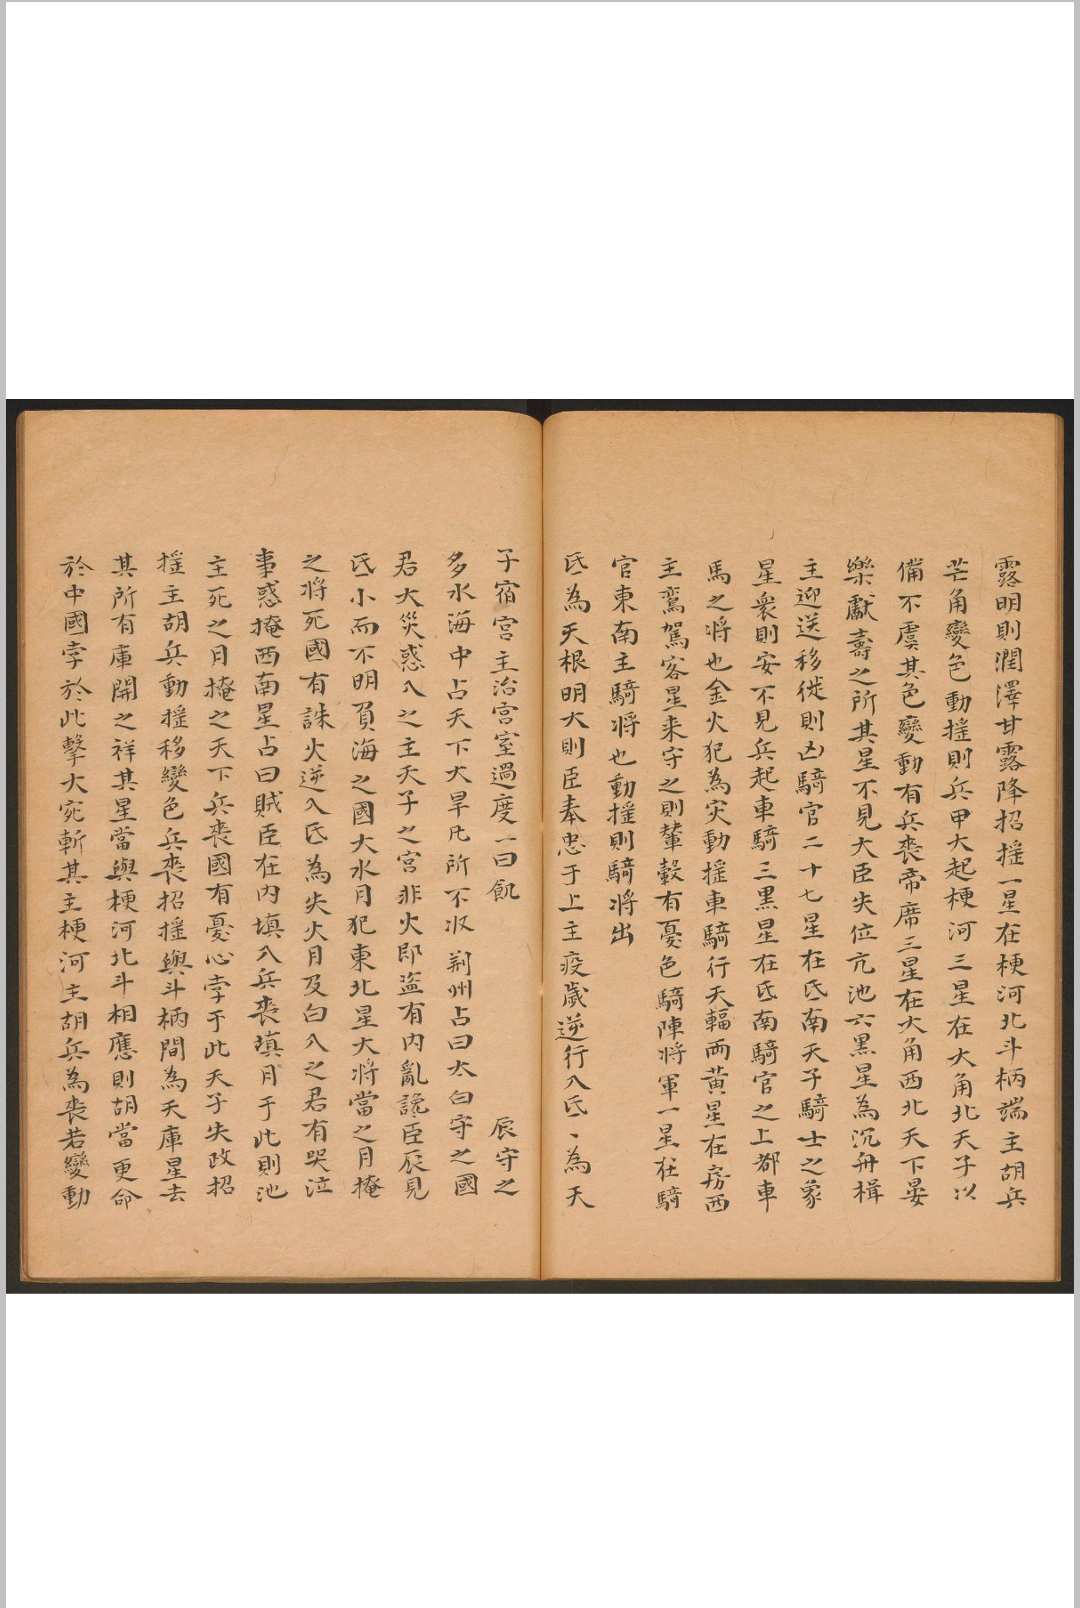 露明則潤澤甘露降招搖一星在梗河北斗柄端主胡兵
芒角變色動搖則兵甲大起梗河三星在大角北天子以
備不虞其色變動有兵喪帝席三星在大角西北天下晏
樂獻壽之所其星不見大臣失位亢池六黑星為沉舟楫
主迎送移徙則凶騎官二十七星在氐南天子騎士之象
星衆則安不見兵起車騎三黑星在氐南騎官之上都車
馬之將也金火犯為灾動搖車騎行天輻兩黃星在房西
主鸞駕客星来守之則輦轂有憂色騎陣將軍一星在騎
官東南主騎將也動搖則騎將出
氐為天根明大則臣奉忠于上主疫歲逆行入氐、為天
子宿宫主治宫室過度一曰飢 辰守之
多水海中占天下大旱凡所不收 荆州占曰太白守之國
君大災惑入之主天子之宫非火即盜有内亂讒臣辰見
氐小而不明負海之國大水月犯東北星大將當之月掩
之將死國有誅火逆入氐為失火月及白入之君有哭泣
事惑掩西南星占曰賊臣在内填入兵喪填月于此則池
主死之月掩之天下兵喪國有憂心孛于此天子失政招
搖主胡兵動搖移變色兵喪招搖與斗柄間為天庫星去
其所有庫開之祥其星當與梗河北斗相應則胡當更命
於中國孛於此擊大宛斬其主梗河主胡兵為喪若變動